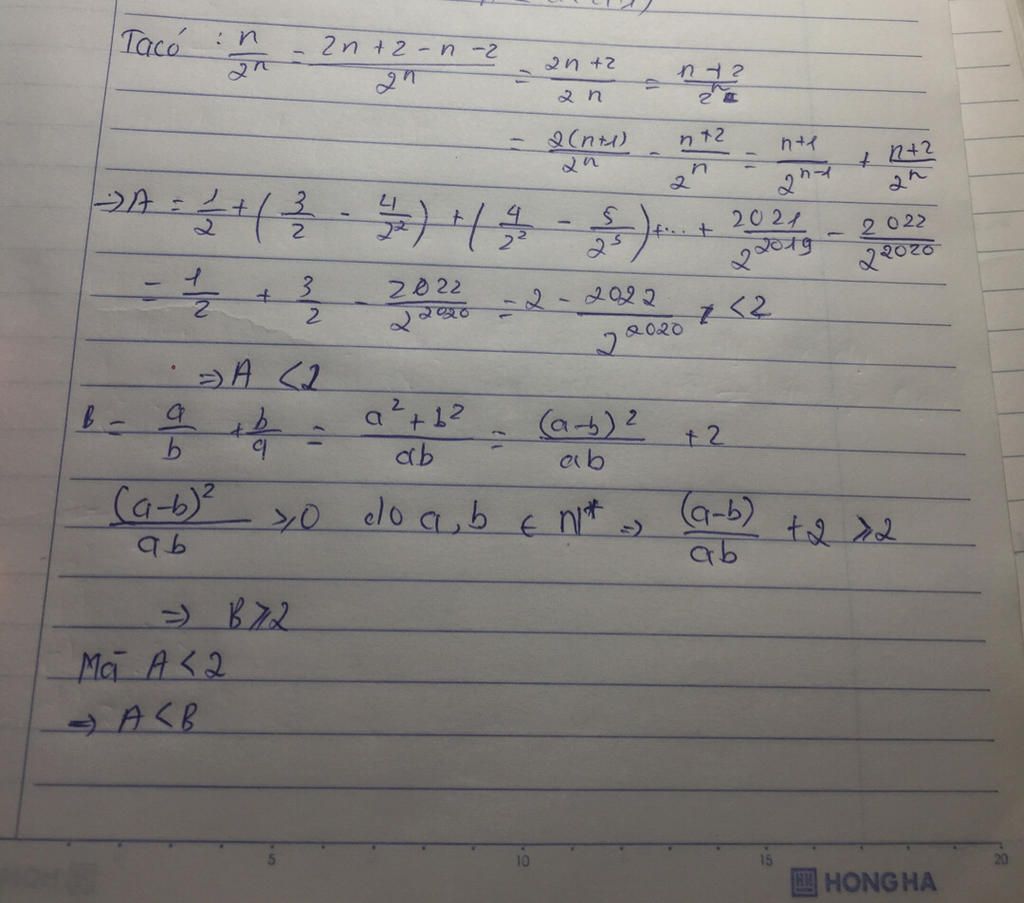 Ta có : n/2ⁿ = (2n + 2 - n - 2)/2ⁿ = (2n + 2)/2n = (n + 2)/2ⁿ
= 2(n+1)/2ⁿ - (n+2)/2ⁿ = (n+1)/2ⁿ⁻¹ + (n+2)/2ⁿ
=> A = 1/2 + (3/2 - 4/2²) + (4/2² - 5/2⁵) + ... + 2021/2²⁰¹⁹ - 2022/2²⁰²⁰
= 1/2 + 3/2 - 2022/2²⁰²⁰ = 2 - 2022/2²⁰²⁰ < 2
=> A < 2
B = a/b + b/a = (a² + b²)/ab = (a-b)²/ab + 2
(a-b)²/ab ⩾ 0 do a, b ∈ N* => (a-b)/ab + 2 ⩾ 2
=> B ⩾ 2
Mà A < 2
=> A < B
5 10 15 20
HONG HA